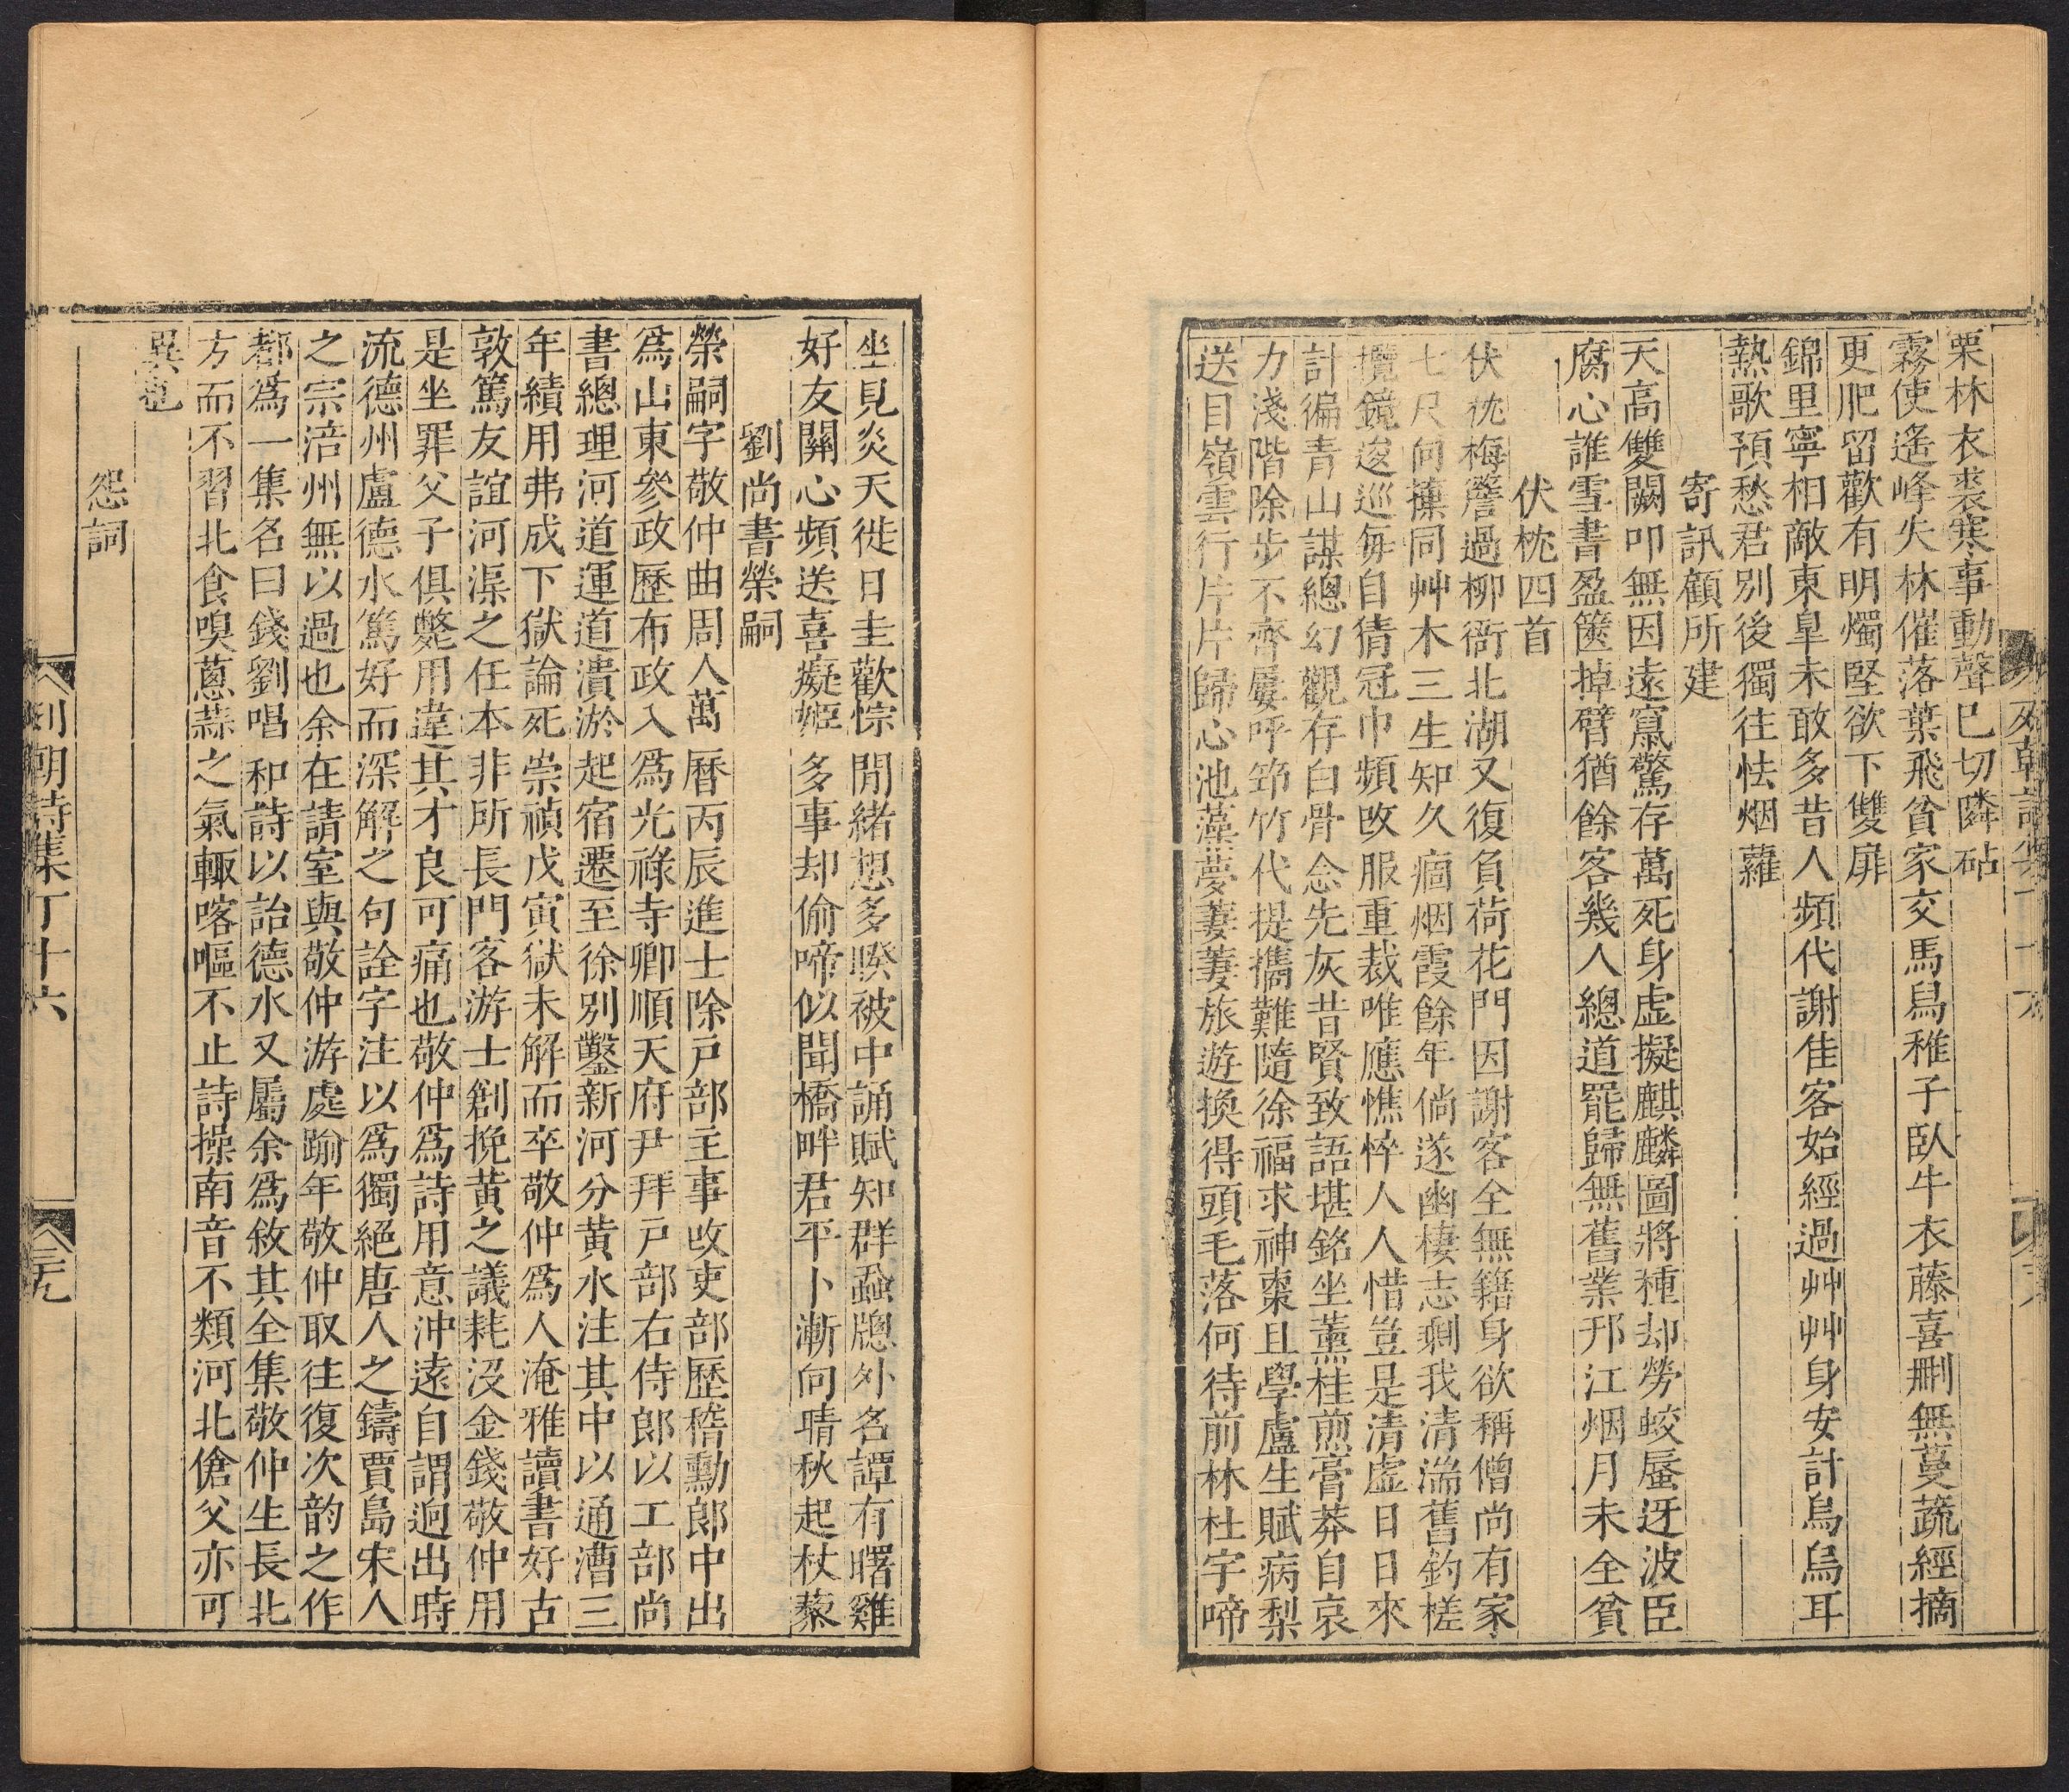 栗林衣裘寒事動聲已切隣砧
霧使遙峰失林催落葉飛貧家交馬舄稚子臥牛衣藤喜刪無蔓蔬經摘
更肥留歡有明燭堅欲下雙扉
錦里寧相敵東臯未敢多昔人頻代謝佳客始經過艸艸身安計烏烏耳
熱歌預愁君別後獨往怯烟蘿
寄訊顧所建
天高雙闕叩無因遠竄驚存萬死身虛擬麒麟圖將種却勞蛟蜃迓波臣
腐心誰雪書盈篋掉臂猶餘客幾人總道罷歸無舊業邗江烟月未全貧
伏枕四首
伏枕梅簷過柳衙北湖又復負荷花門因謝客全無籍身欲稱僧尚有家
七尺何蘀同艸木三生知久痼烟霞餘年倘遂幽棲志剩我清湍舊釣槎
攬鏡逡巡每自猜冠巾頻改服重裁唯應憔悴人人惜豈是清虛日日來
計徧青山謀總幻觀存白骨念先灰昔賢致語堪銘坐薰桂煎膏莽自哀
力淺階除步不齊屢呼筇竹代提攜難隨徐福求神棗且學盧生賦病梨
送目嶺雲行片片歸心池藻夢萋萋旅遊換得頭毛落何待前林杜宇啼
坐見炎天徙日圭歡悰閒緒想多暌被中誦賦知群蝨牕外名譚有曙雞
好友關心頻送喜癡姬多事却偷啼似聞橋畔君平卜漸向晴秋起杖藜
劉尚書榮嗣
榮嗣字敬仲曲周人萬曆丙辰進士除戶部主事改吏部歷稽勳郎中出
爲山東參政歷布政入爲光祿寺卿順天府尹拜戶部右侍郎以工部尚
書總理河道運道潰淤起宿遷至徐別鑿新河分黃水注其中以通漕三
年績用弗成下獄論死崇禎戊寅獄未解而卒敬仲爲人淹雅讀書好古
敦篤友誼河渠之任本非所長門客游士創挽黃之議耗沒金錢敬仲用
是坐罪父子俱斃用違其才良可痛也敬仲爲詩用意沖遠自謂迥出時
流德州盧德水篤好而深解之句詮字注以爲獨絕唐人之鑄賈島宋人
之宗涪州無以過也余在請室與敬仲游處踰年敬仲取往復次韵之作
都爲一集名曰錢劉唱和詩以詒德水又屬余爲敘其全集敬仲生長北
方而不習北食嗅蔥蒜之氣輒喀嘔不止詩操南音不類河北傖父亦可
異也
怨詞
列朝詩集丁十六
三九